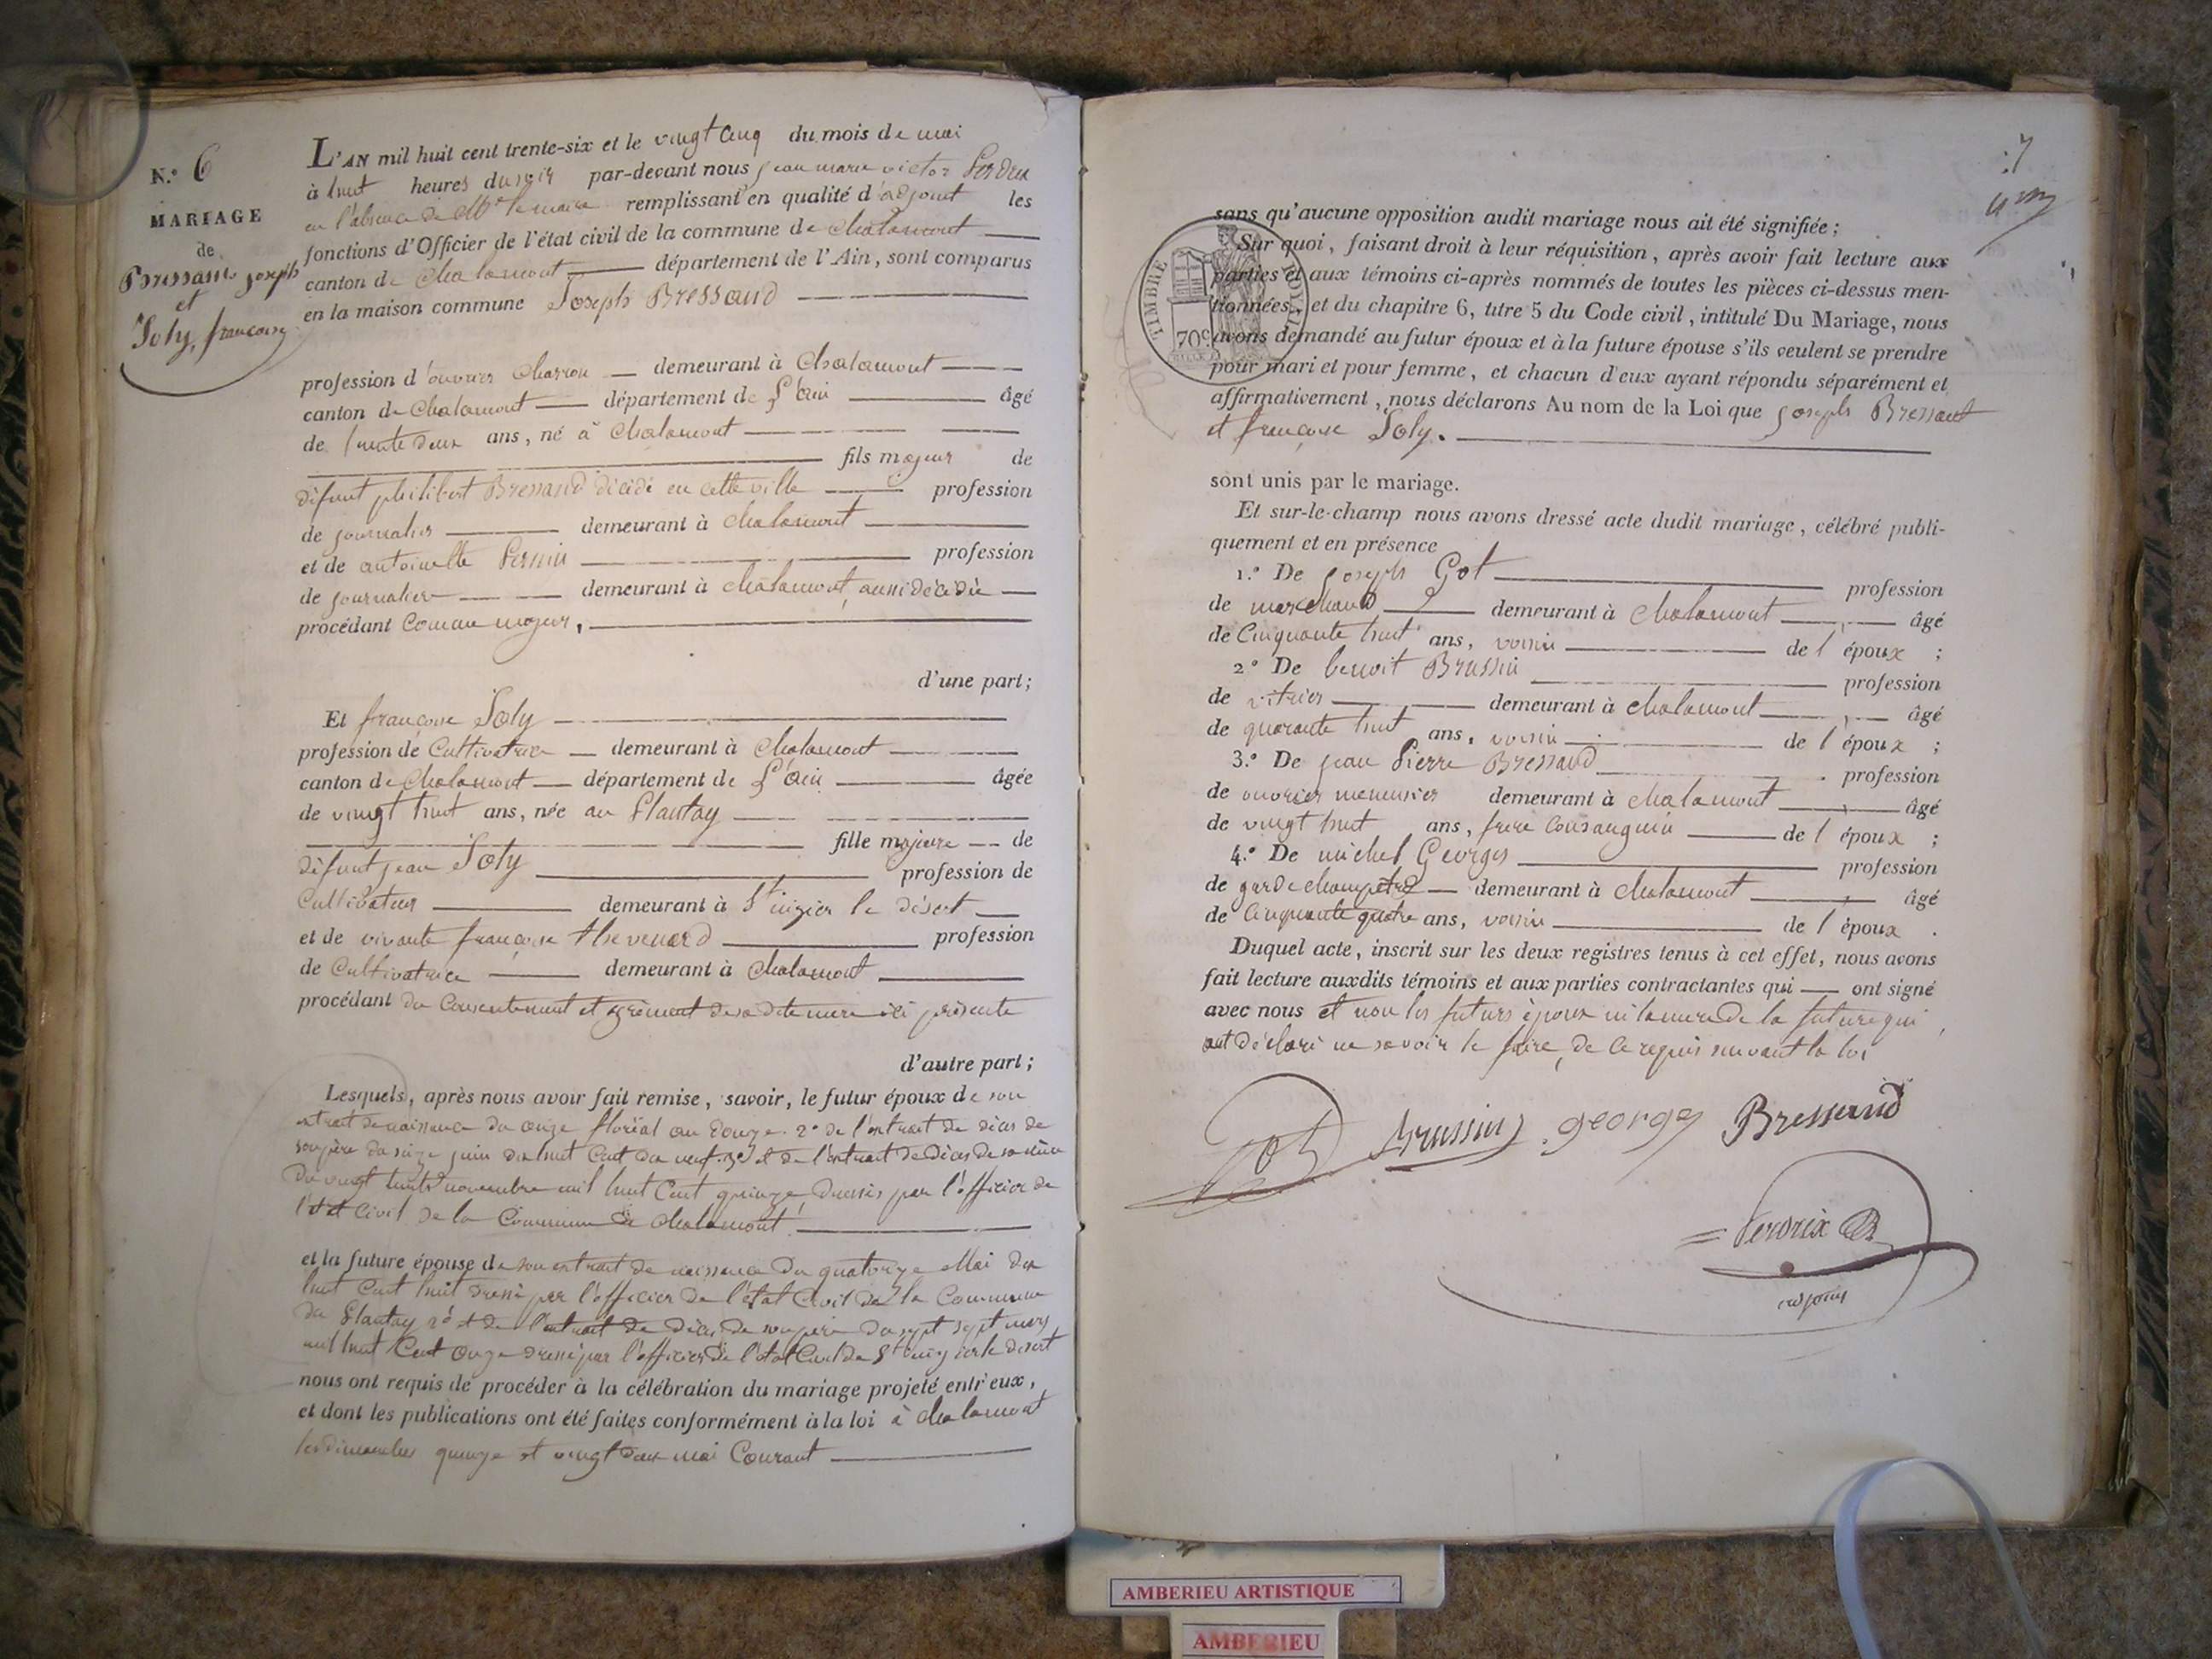 N.º 6
MARIAGE
de
Bressand joseph
et
Joly, françoise
L'AN mil huit cent trente-six et le vingt cinq du mois de mai
à huit heures du soir par-devant nous jean marie victor Perdrix
en l'absence de Mr le maire remplissant en qualité d'adjoint les
fonctions d'Officier de l'état civil de la commune de chalamont
canton de chalamont département de l'Ain, sont comparus
en la maison commune Joseph Bressand
profession d'ouvrier charron demeurant à Chalamont
canton de Chalamont département de L'ain âgé
de trente deux ans, né à Chalamont
fils majeur de
défunt philibert Bressand décédé en cette ville profession
de journalier demeurant à chalamont
et de antoinette Pernin profession
de journaliere demeurant à chalamont, aussi décédée
procédant comme majeur,
d'une part;
Et françoise Joly
profession de Cultivatrice demeurant à Chalamont
canton de Chalamont département de L'ain âgée
de vingt huit ans, née au Plantay
fille majeure de
défunt jean Joly profession de
Cultivateur demeurant à St nizier le désert
et de vivante françoise thevenard profession
de Cultivatrice demeurant à Chalamont
procédant du consentement et agrément de sa dite mere ici présente
d'autre part;
Lesquels, après nous avoir fait remise, savoir, le futur époux de son
extrait de naissance du onze floréal an douze. 2º de l'extrait de décès de
son père du seize juin dix huit cent dix neuf. 3º et de l'extrait de décès de sa mère
du vingt huit novembre mil huit cent quinze, dressés par l'officier de
l'état civil de la Commune de chalamont
et la future épouse de son extrait de naissance du quatorze Mai dix
huit cent huit dressé par l'officier de l'état civil de la Commune
du Plantay 2º et de l'extrait de décès de son père du sept mars
mil huit cent onze dressé par l'officier de l'état civil de St nizier le désert
nous ont requis de procéder à la célébration du mariage projeté entr'eux,
et dont les publications ont été faites conformément à la loi à chalamont
les dimanches quinze et vingt deux mai Courant
7
sans qu'aucune opposition audit mariage nous ait été signifiée;
Sur quoi, faisant droit à leur réquisition, après avoir fait lecture aux
parties et aux témoins ci-après nommés de toutes les pièces ci-dessus men-
tionnées, et du chapitre 6, titre 5 du Code civil, intitulé Du Mariage, nous
avons demandé au futur époux et à la future épouse s'ils veulent se prendre
pour mari et pour femme, et chacun d'eux ayant répondu séparément et
affirmativement, nous déclarons Au nom de la Loi que joseph Bressand
et françoise Joly.
TIMBRE ROYAL
70c.
sont unis par le mariage.
Et sur-le-champ nous avons dressé acte dudit mariage, célébré publi-
quement et en présence
1.º De joseph Got profession
de marchand demeurant à Chalamont âgé
de Cinquante huit ans, voisin de l'époux ;
2º De benoit Brussin profession
de vitrier demeurant à chalamont âgé
de quarante huit ans, voisin de l'époux ;
3.º De jean Pierre Bressand profession
de ouvrier menuisier demeurant à chalamont âgé
de vingt huit ans, frere consanguin de l'époux ;
4.º De michel Georges profession
de garde champêtre demeurant à chalamont âgé
de cinquante quatre ans, voisin de l'époux .
Duquel acte, inscrit sur les deux registres tenus à cet effet, nous avons
fait lecture auxdits témoins et aux parties contractantes qui ont signé
avec nous et non les futurs époux ni la mere de la future qui
ont déclaré ne savoir le faire, de ce requis suivant la loi
Got Brussin georges Bressand
Perdrix
adjoint
AMBERIEU ARTISTIQUE
AMBERIEU